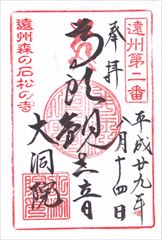 遠州第二番
奉拝
平成廿九年
八月十四日
観世音
大洞院
遠州森の石松の寺